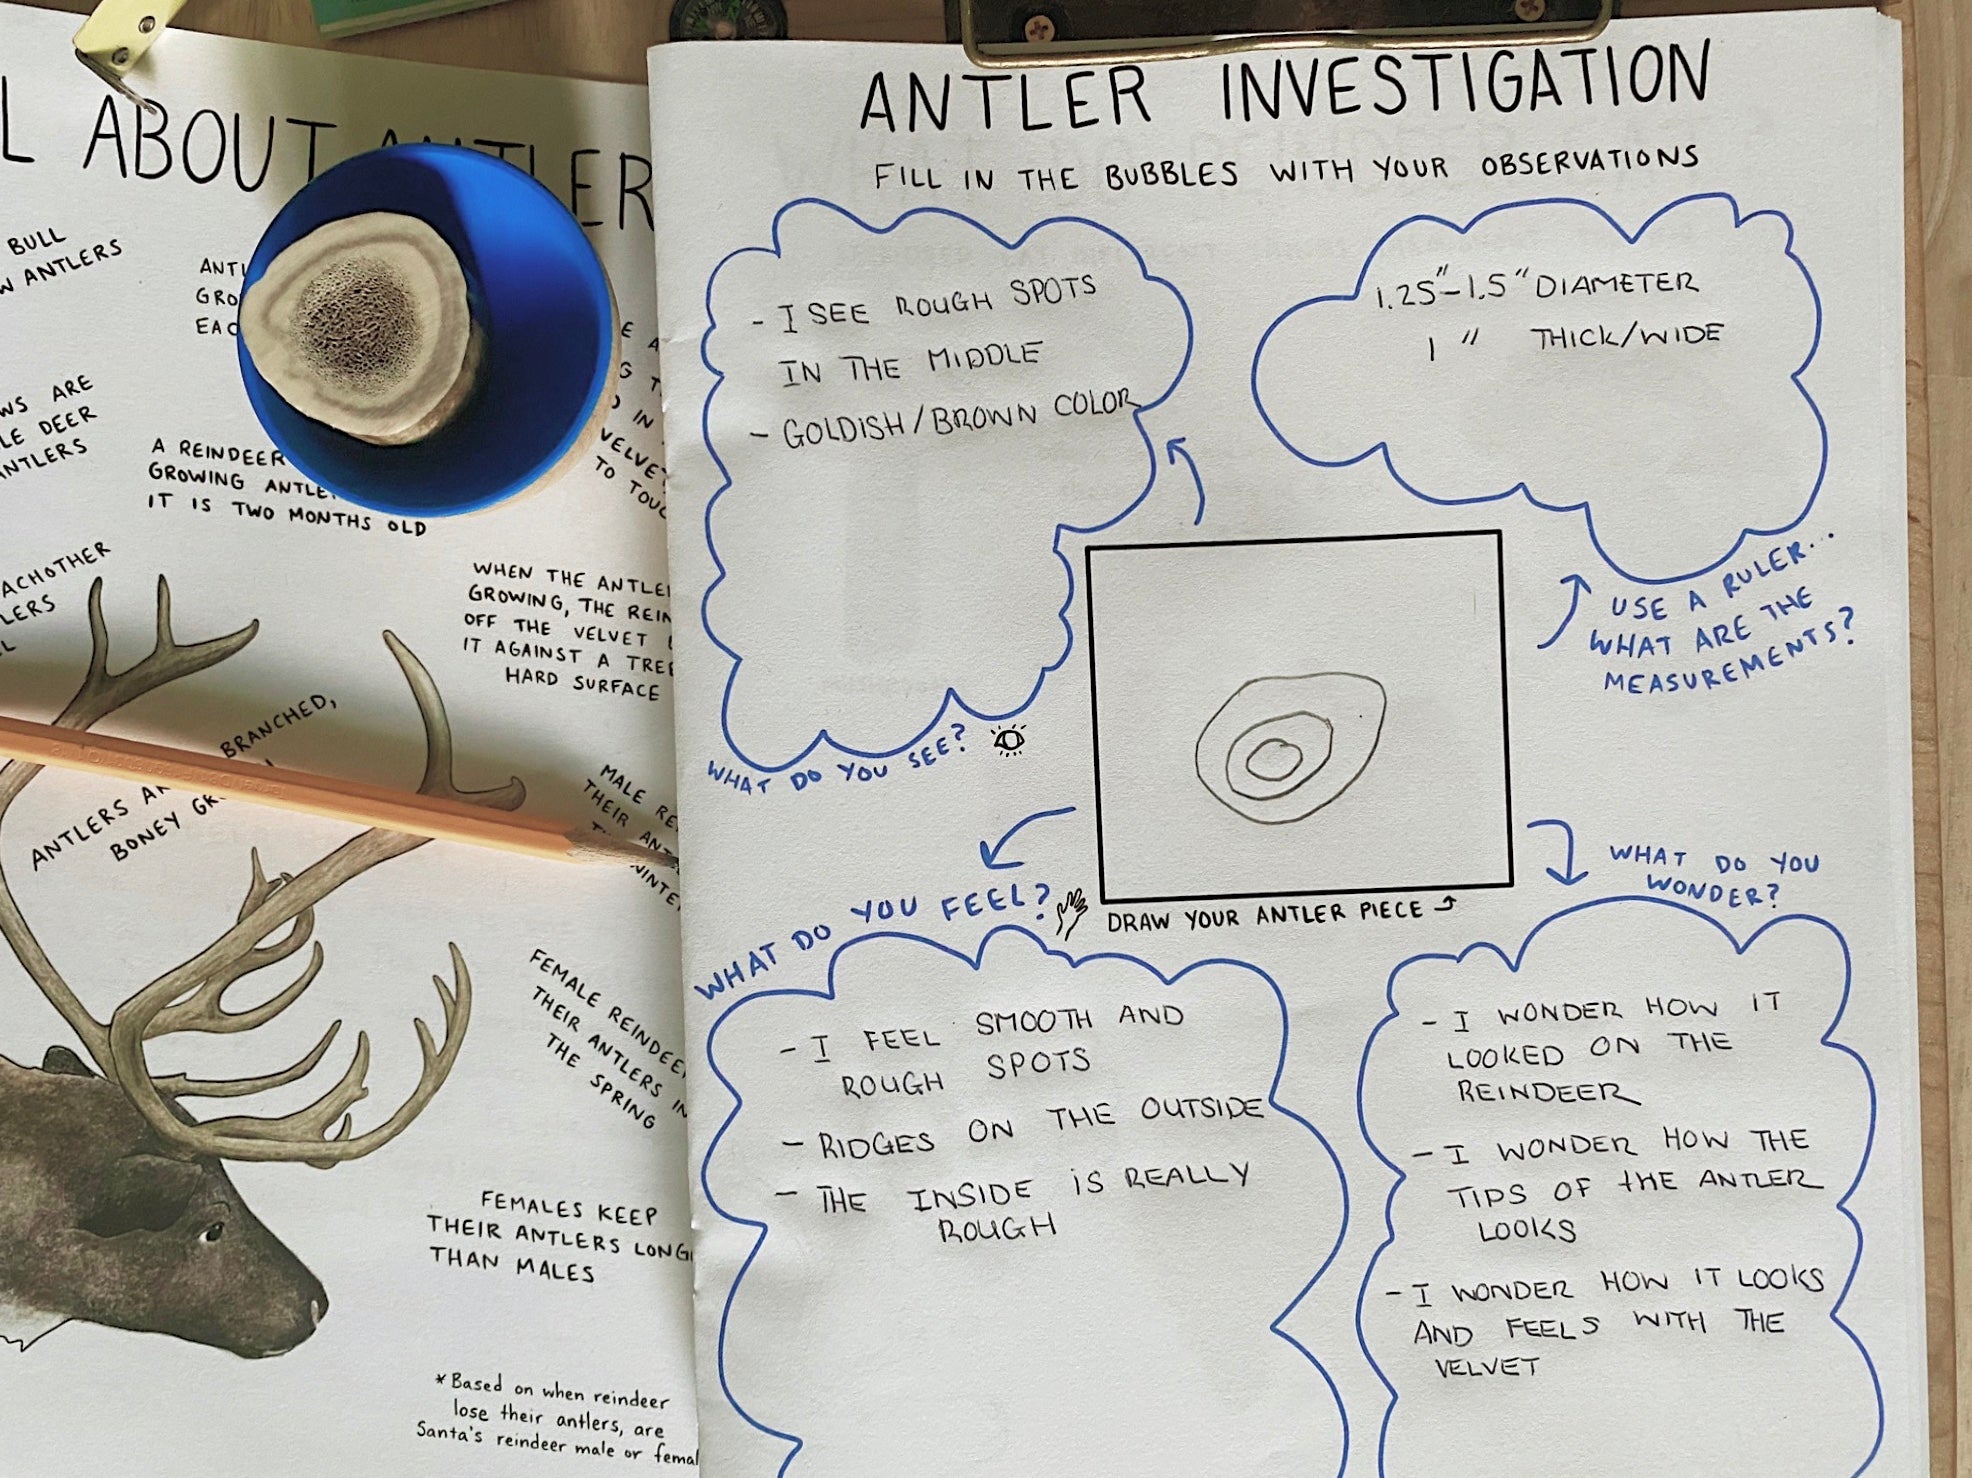 ABOUT
BULL
ANTLERS
ARE
DEER
A REINDEER
GROWING
IT IS TWO MONTHS OLD
IN
TO
WHEN THE
GROWING, THE
OFF THE VELVET
IT AGAINST A
HARD SURFACE
BRANCHED,
ANTLERS
BONEY
MALE
THEIR
FEMALE
THEIR ANTLERS IN
THE SPRING
FEMALES KEEP
THEIR ANTLERS
THAN MALES
*Based on when reindeer
lose their antlers, are
Santa's reindeer male or
ANTLER INVESTIGATION
FILL IN THE BUBBLES WITH YOUR OBSERVATIONS
- I SEE ROUGH SPOTS
IN THE MIDDLE
- GOLDISH/BROWN COLOR
WHAT DO YOU SEE?
1.25"-1.5" DIAMETER
1" THICK/WIDE
USE A RULER...
WHAT ARE THE
MEASUREMENTS?
DRAW YOUR ANTLER PIECE
WHAT DO YOU FEEL?
- I FEEL SMOOTH AND
ROUGH SPOTS
- RIDGES ON THE OUTSIDE
- THE INSIDE IS REALLY
ROUGH
WHAT DO YOU
WONDER?
- I WONDER HOW IT
LOOKED ON THE
REINDEER
- I WONDER HOW THE
TIPS OF THE ANTLER
LOOKS
- I WONDER HOW IT LOOKS
AND FEELS WITH THE
VELVET